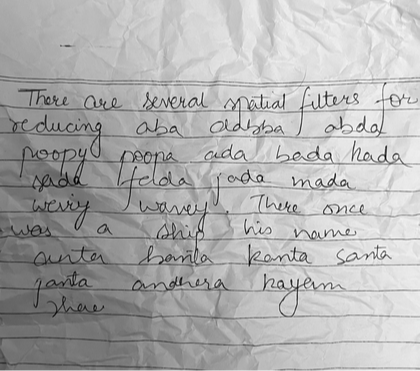 There are several spatial filters for
reducing aba dabba abda
poopy poopa ada bada hada
sada felda jada mada
waviy wavey. There once
was a ship his name
anta banta kanta santa
janta andhera kayam